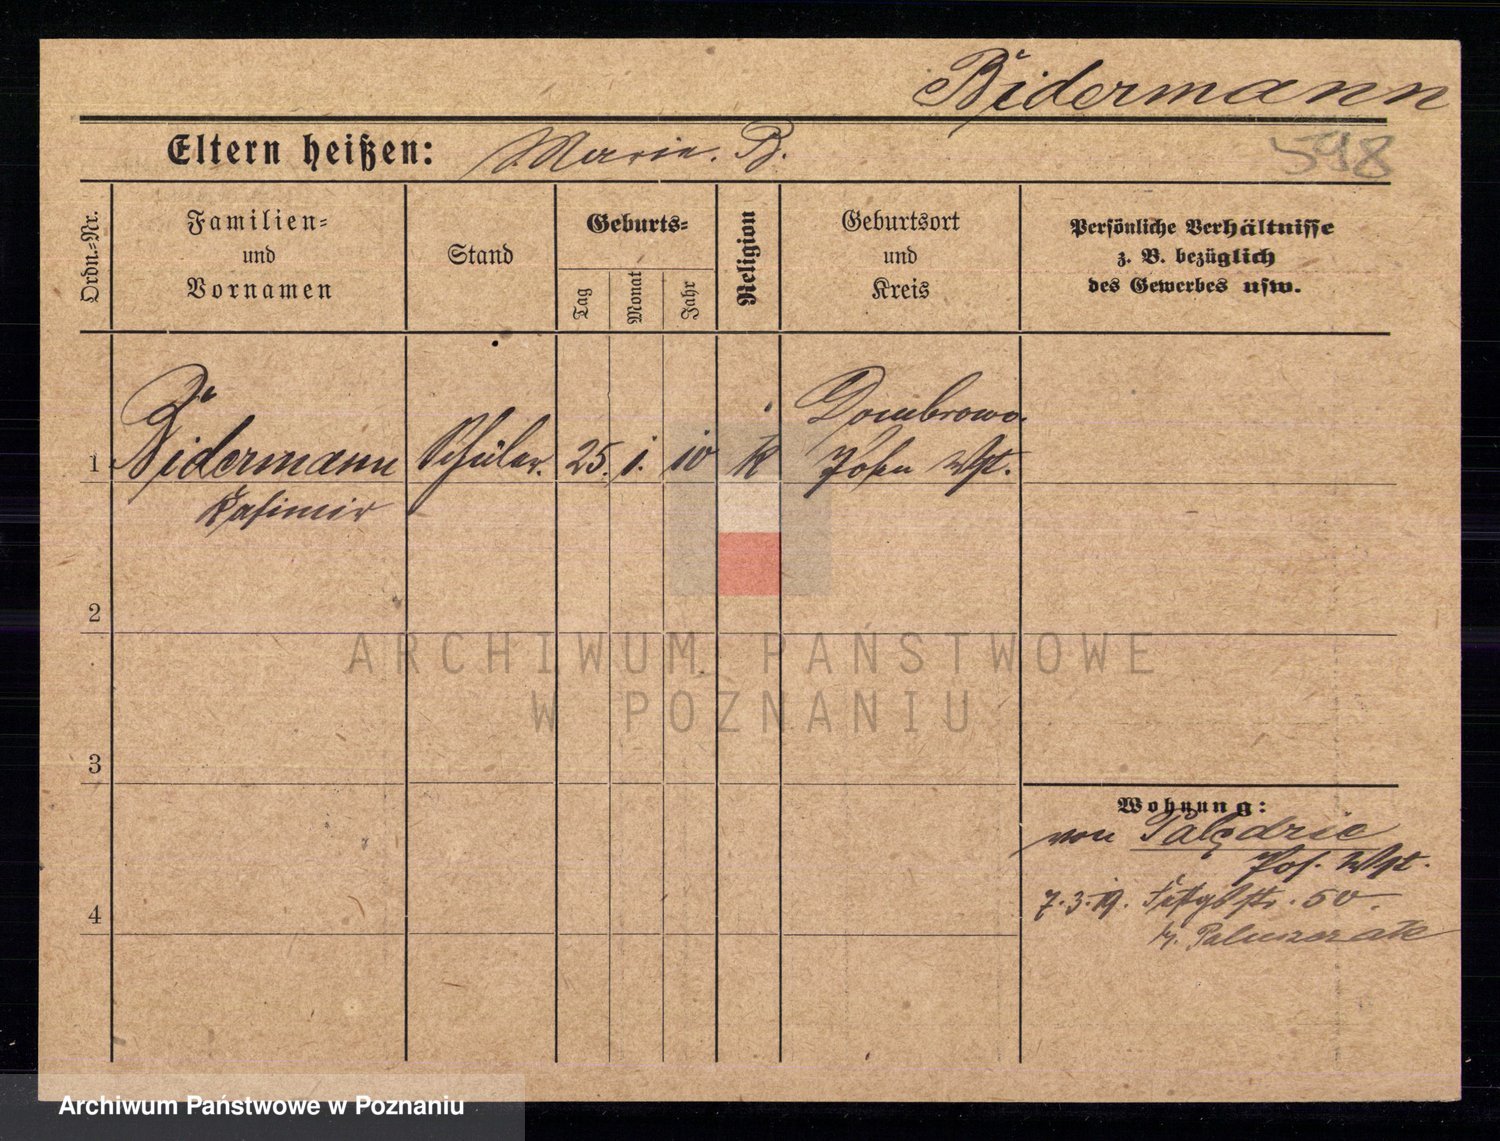 Bidermann
Eltern heißen: Marie. B.
598
Ordn.=Nr.
Familien=
und
Vornamen
Stand
Geburts=
Tag
Monat
Jahr
Religion
Geburtsort
und
Kreis
Persönliche Verhältnisse
z. B. bezüglich
des Gewerbes usw.
Dombrowo
1 Bidermann Schüler. 25. 1. 10 k Posen Wst.
Kasimir
2
ARCHIWUM PAŃSTWOWE
W POZNANIU
3
Wohnung:
von Palędzie
Pos. Wst.
7.3.19. 50.
4
Archiwum Państwowe w Poznaniu